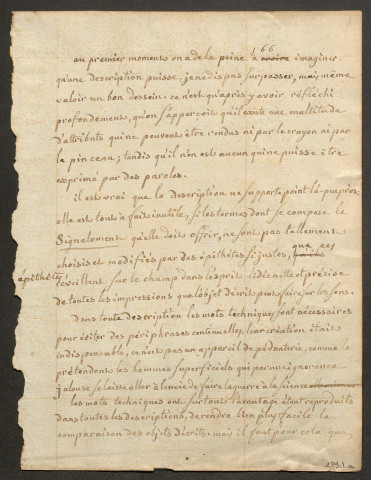 166
au premier moment on a de la peine à croire imaginer
qu'une description puisse, je ne dis pas surpasser, mais même
valoir un bon dessein. ce n'est qu'après y avoir réfléchi
profondement, qu'on s'apperçoit qu'il existe une multitude
d'attributs qui ne peuvent être rendus ni par le crayon ni par
le pinceau; tandis qu'il n'en est aucun qui ne puisse être
exprimé par des paroles.
il est vrai que la description ne supporte point l'à-peu-près;
elle est tout à fait inutile, si les termes dont se compose le
signalement qu'elle doit offrir, ne sont pas tellement
choisis et modifiés par des épithètes si justes, que ces
épithètes
réveillent sur le champ dans l'esprit l'idée nette et précise
de toutes les impressions que l'objet décrit peut faire sur les sens.
Dans toute description les mots techniques sont nécessaires
pour éviter des périphrases continuelles. leur création était
indispensable, ce n'est pas un appareil de pédanterie, comme le
prétendent les hommes superficiels qui par une ignorance
jalouse se laisse aller à l'envie de faire la guerre à la science
les mots techniques ont surtout l'avantage étant reproduits
dans toutes les descriptions, de rendre bien plus facile la
comparaison des objets décrits; mais il faut pour cela que